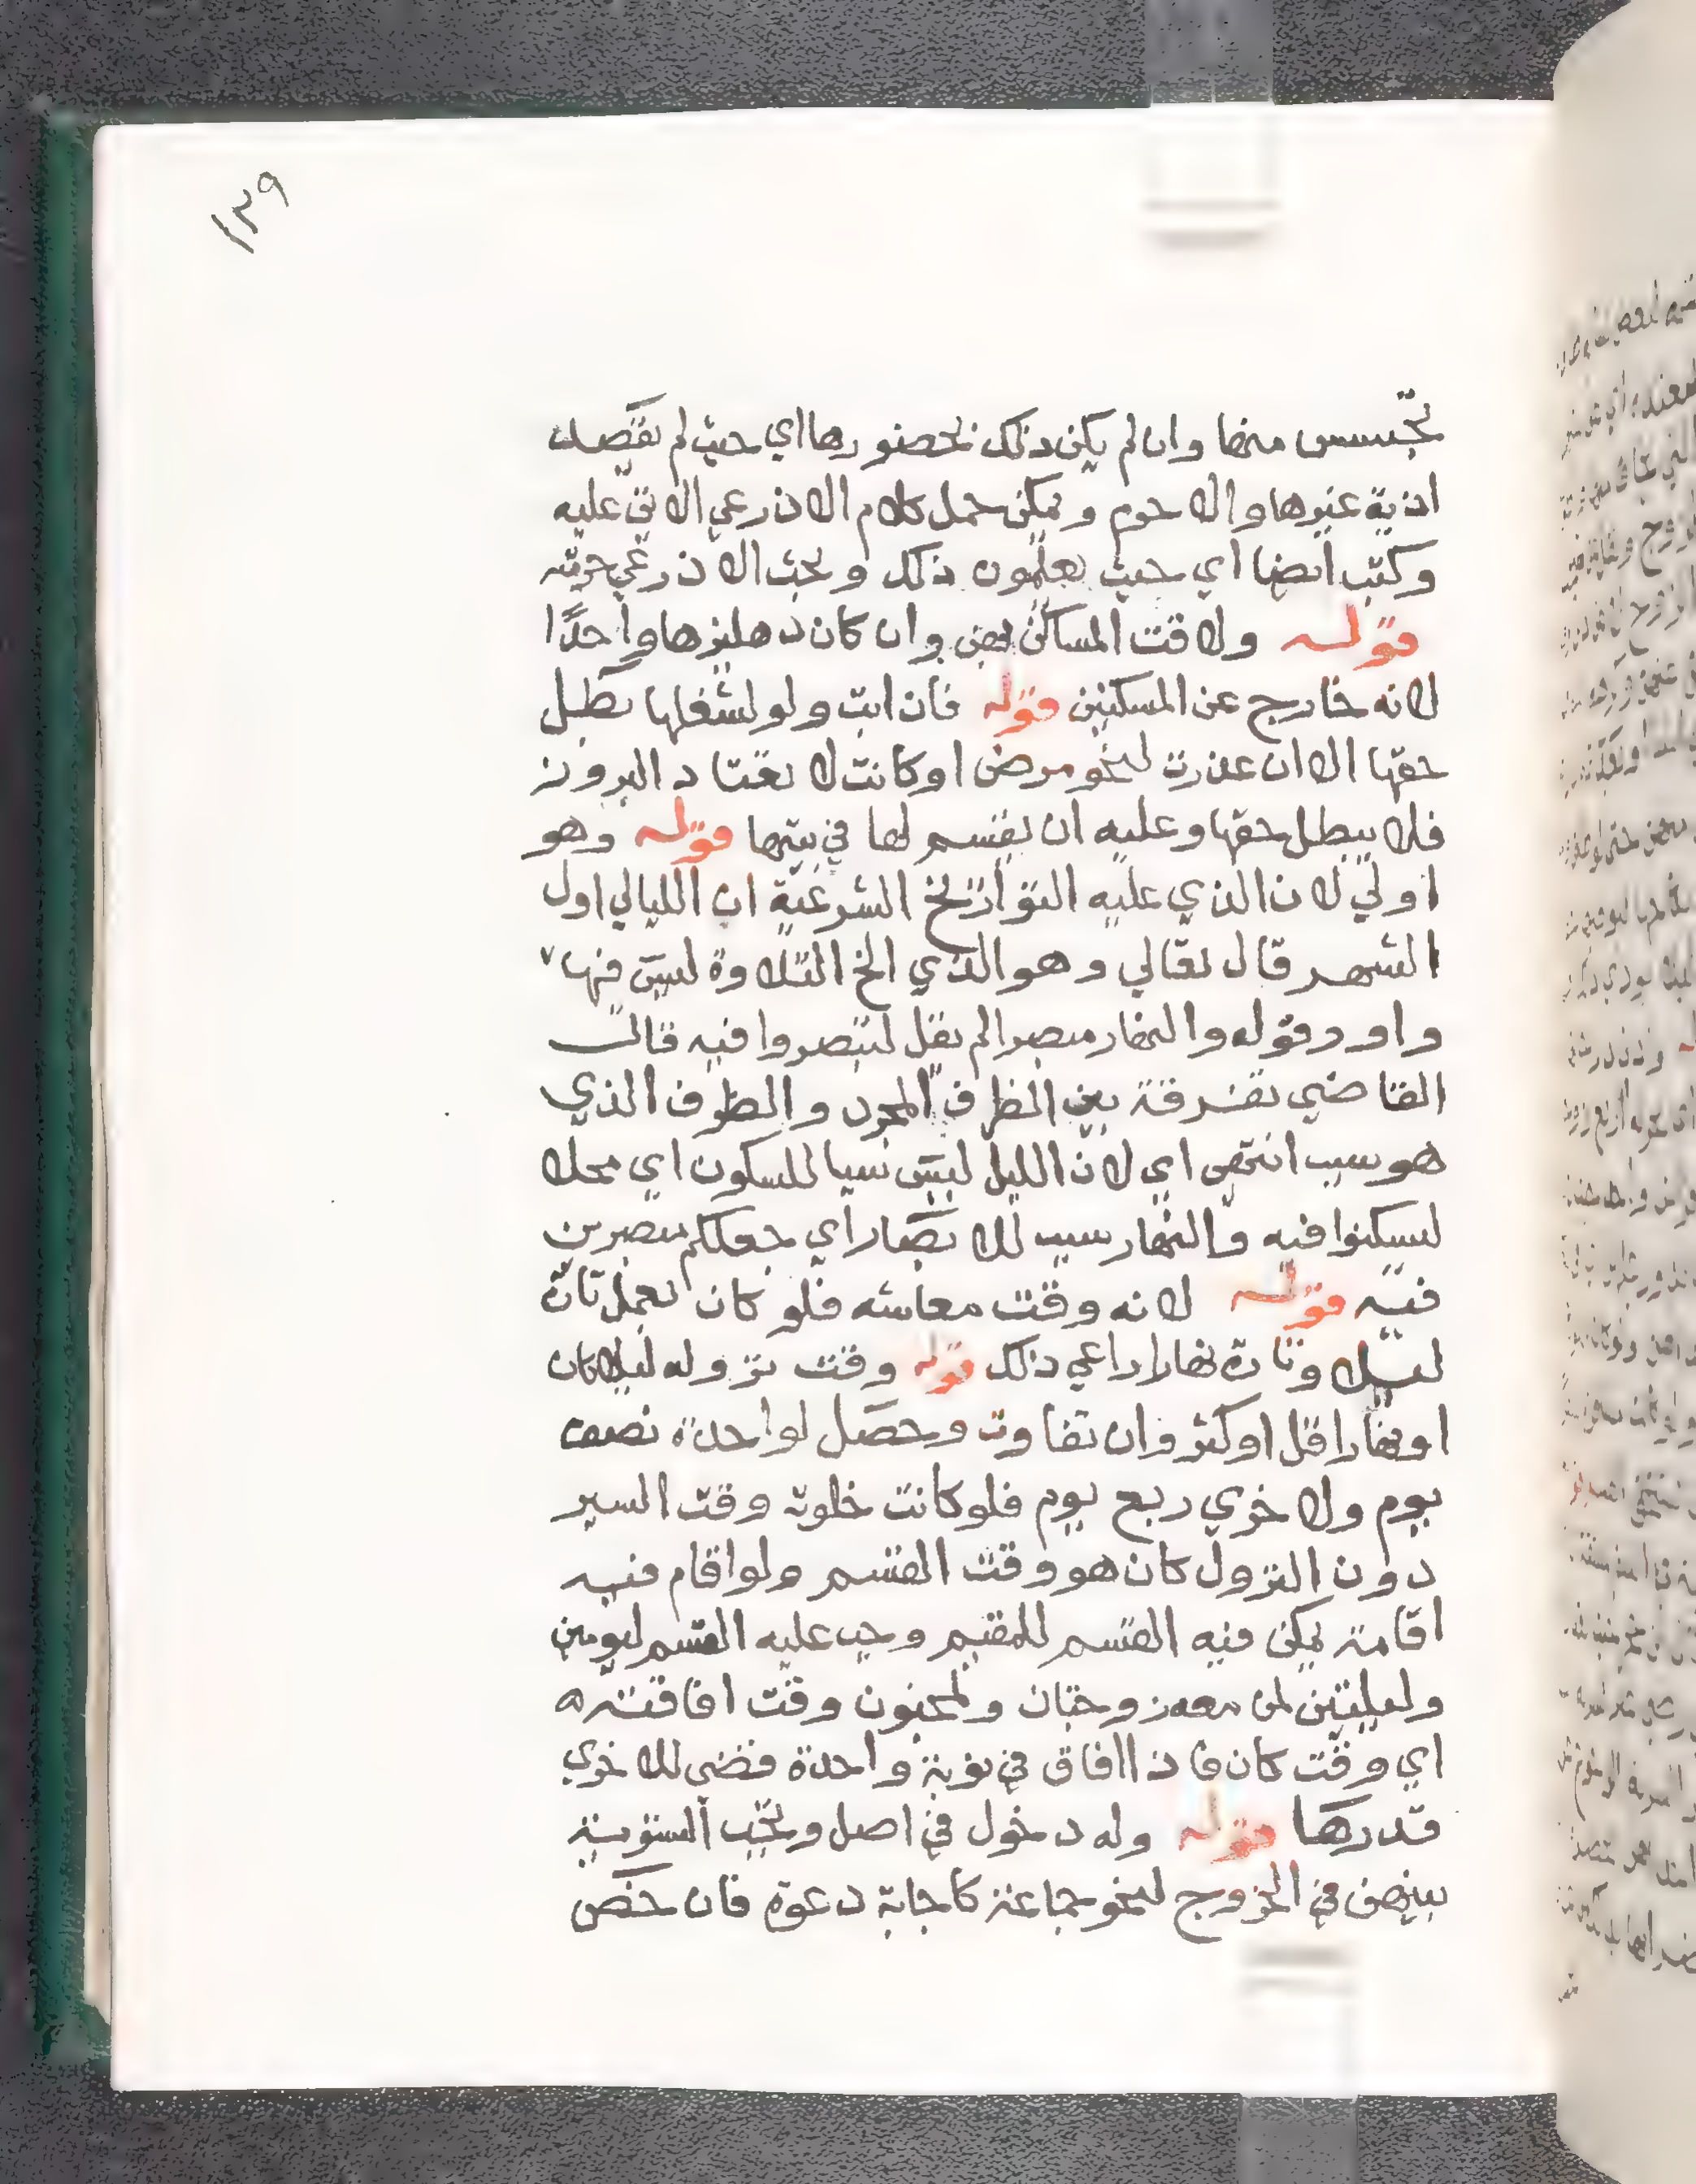 ١٣٩
تجسس منها وان لم يكن ذلك بحضورها اي حيث لم يقصد
اذية غيرها والا حرم ويمكن حمل كلام الاذرعي الاتي عليه
وكتب ايضا اي حيث يعلمون ذلك وبحث الاذرعي حرمته
قوله ولاقت المساكن بهن وان كان دهليزها واحدًا
لانه خارج عن المسكنين قوله فان ابت ولو لشغلها بطل
حقها الا ان عذرت لنحو مرض او كانت لا تعتاد البروز
فلا يبطل حقها وعليه ان يقسم لها في بيتها قوله وهو
اولي لان الذي عليه التواريخ الشرعية ان الليالي اول
الشهر قال تعالي وهو الذي الخ التلاوة ليس فيها
واو وقوله والنهار مبصرا لم يقل لتبصروا فيه قال
القاضي تفرقة بين الظرف المجرد والظرف الذي
هو سبب انتهى اي لان الليل ليس سببا للسكون اي محل
لسكنوا فيه والنهار سبب للابصار اي جعلكم مبصرين
فيه قوله لانه وقت معاشه فلو كان يعمل تارة
ليلا وتارة نهارا راعي ذلك قوله وقت نزوله ليلا كان
او نهارا قل او كثر وان تفاوت وحصل لواحدة نصف
يوم ولاخري ربع يوم فلو كانت خلوته وقت السير
دون النزول كان هو وقت القسم ولو اقام فيه
اقامة يمكن فيه القسم للمقيم وجب عليه القسم ليومين
ولليلتين لمن معه زوجتان ولمجنون وقت افاقته
اي وقت كان فاذا افاق في نوبة واحدة قضى للاخري
قدرها قوله وله دخول في اصل وتجب التسوية
بينهن في الخروج لنحو جماعة كاجابة دعوة فان خص